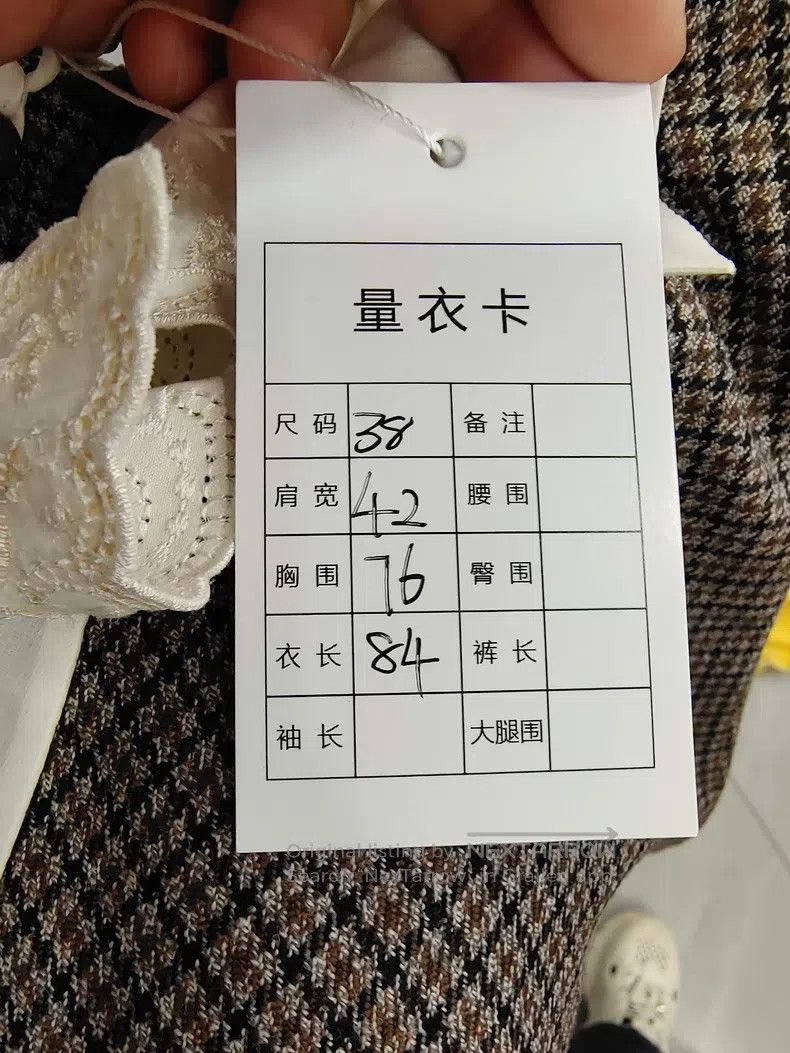 量衣卡
尺码 38 备注
肩宽 42 腰围
胸围 76 臀围
衣长 84 裤长
袖长 大腿围
Original listing by NEXTARROW